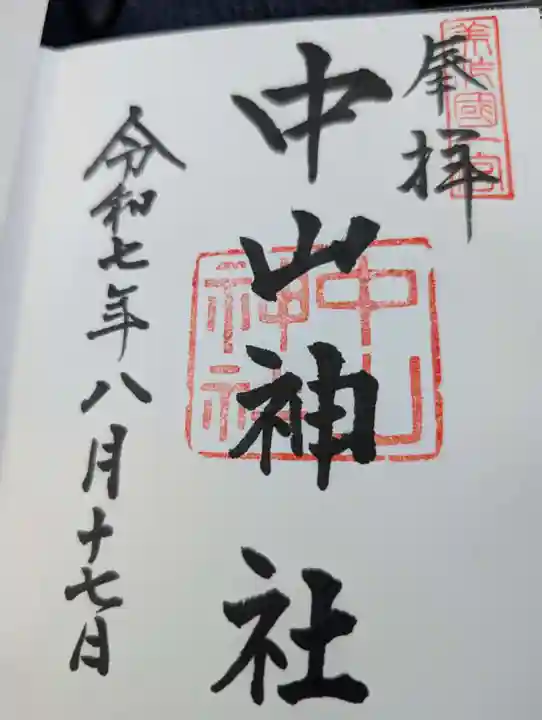 奉拝
美作國一宮
中山神社
中山神社
令和七年八月十七日